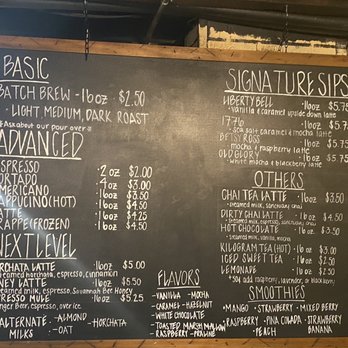 BASIC
BATCH BREW - 16oz $2.50
- LIGHT, MEDIUM, DARK ROAST
Ask about our pour over!!
ADVANCED
ESPRESSO · 2 oz $2.00
ORTADO · 4oz $3.00
MERICANO · 16oz $3.50
APPUCINO (HOT) · 16oz $4.00
ATTE · 16oz $4.25
RAPPE (FROZEN) · 16oz $4.50
NEXT LEVEL
RCHATA LATTE - 16oz $5.00
steamed horchata, espresso, cinnamon
NEY LATTE - 16oz $5.50
steamed milk, espresso, Savannah Bee Honey
PRESSO MULE - 16oz $5.25
Ginger Beer, espresso, over ice
ALTERNATE MILKS
- ALMOND
- OAT
- HORCHATA
FLAVORS
- VANILLA - MOCHA
- CARAMEL - HAZELNUT
- WHITE CHOCOLATE
- TOASTED MARSHMALLOW
- RASPBERRY - PRALINE
SIGNATURE SIPS
LIBERTY BELL · 16oz $5.75
- vanilla & caramel upside down latte
1776 · 16oz $5.7
- sea salt caramel & mocha latte
BETSY ROSS · 16oz $5.75
- mocha & raspberry latte
OLD GLORY · 16oz $5.75
- white mocha & blackberry latte
OTHERS
CHAI TEA LATTE · 16oz $3.50
DIRTY CHAI LATTE · 16oz $4.50
HOT CHOCOLATE · 16oz $3.50
- steamed milk, vanilla, mocha
KILOGRAM TEA (HOT) · 16oz $3.00
ICED SWEET TEA · 16oz $2.50
LEMONADE · 16oz $2.50
SMOOTHIES
- MANGO - STRAWBERRY - MIXED BERRY
- RASPBERRY - PINA COLADA - STRAWBERRY BANANA
- PEACH